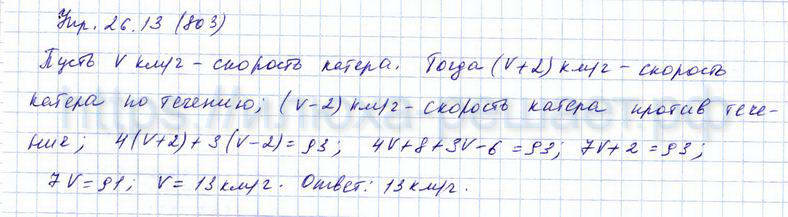 Упр. 26.13 (803)
Пусть v км/г - скорость катера. Тогда (v+2) км/г - скорость
катера по течению; (v-2) км/г - скорость катера против тече-
ние; 4(v+2)+3(v-2)=93; 4v+8+3v-6=93; 7v+2=93;
7v=91; v=13 км/г. Ответ: 13 км/г.